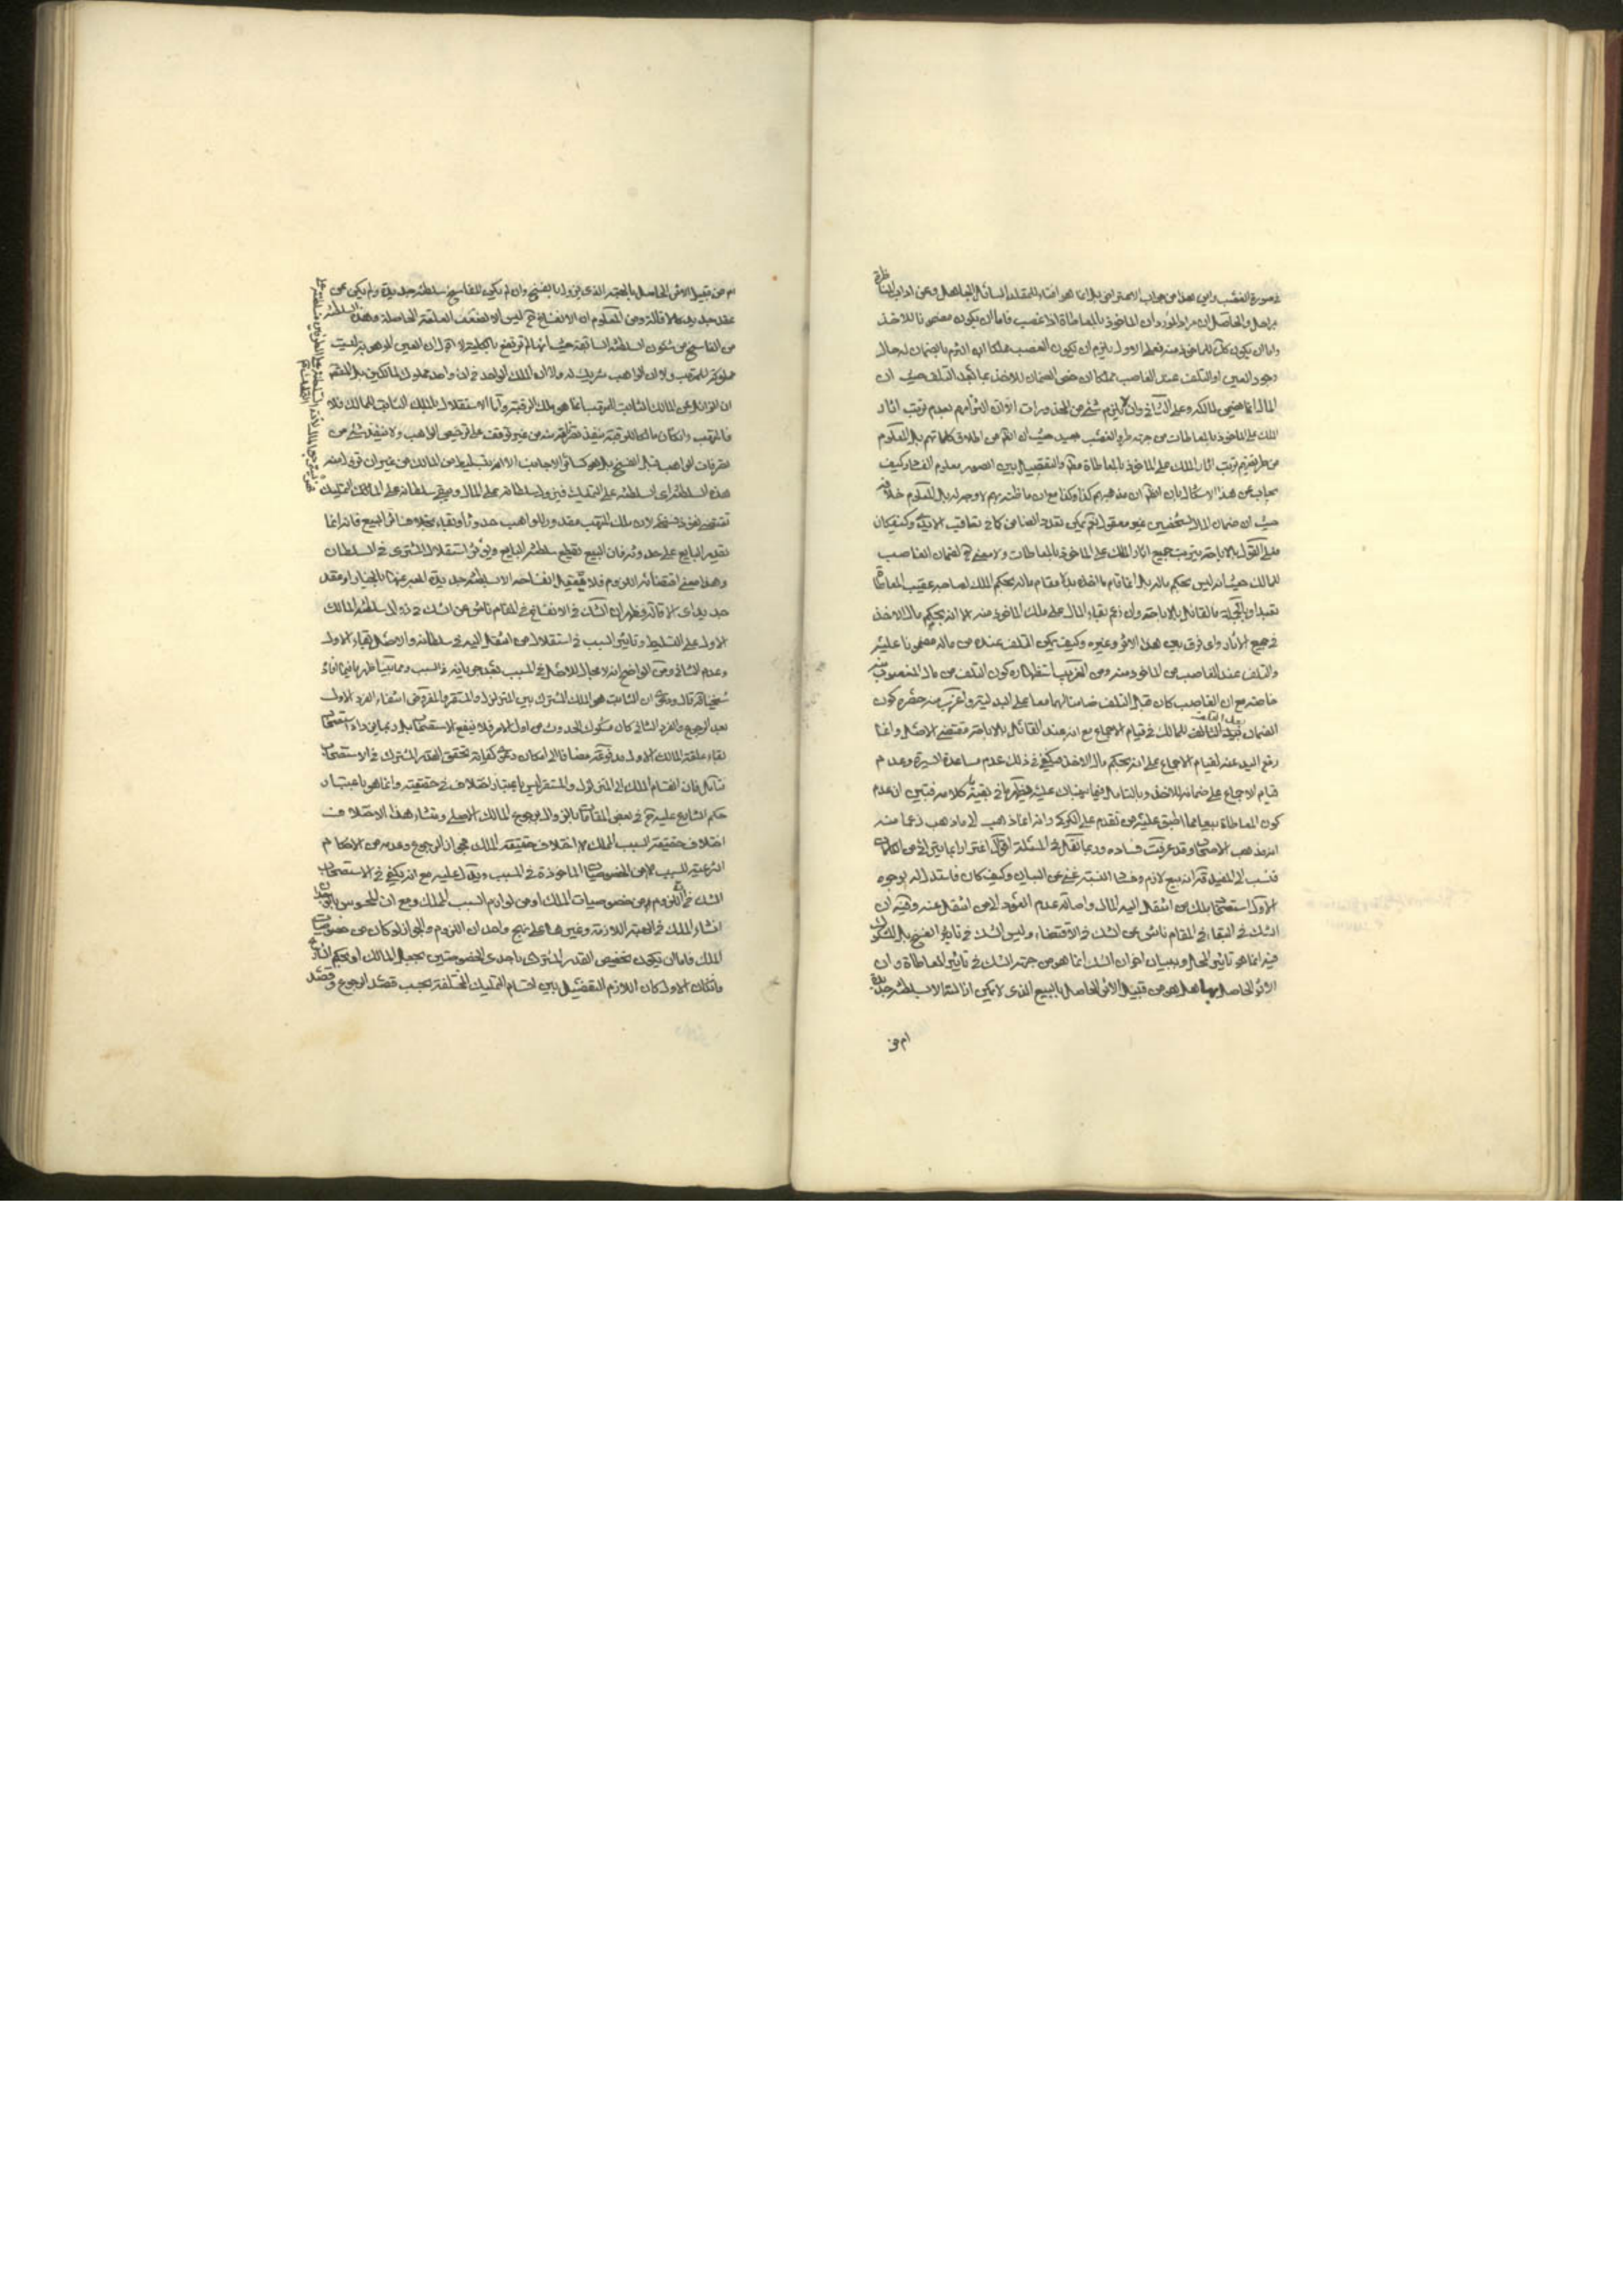 في صورة الغصب واين هذا من جواب الاعتراض بل انما هو افتاء للمقلد السائل الجاهل وعن اداب المناظرة
بمراحل والحاصل ان مراد المورد ان الماخوذ بالمعاطاة اذا غصب فاما ان يكون مضمونا للاخذ
واما ان يكون للماخوذ منه فعلى الاول يلزم ان يكون الغصب مملكا اذ التزم بالضمان له حال
وجود العين او التلف عند الغاصب مملكا ان خص الضمان للاخذ بما بعد التلف حيث ان
المال انما يضمن لمالكه وعلى الثاني وان لم يلزم شيء من المحذورات الا ان التزامهم بعدم ترتب اثار
الملك على الماخوذ بالمعاطات من جهة طرو الغصب بعيد حيث ان الظاهر من اطلاق كلماتهم بل المعلوم
من طريقتهم ترتب اثار الملك على الماخوذ بالمعاطاة مطلقا والتفصيل بين الصور معلوم الفساد وكيف
يجاب عن هذا الاشكال بان الظاهر ان مذهبهم كذا وكذا مع ان ما ظنه بهم لا وجه له بل المعلوم خلافه
حيث ان ضمان المال لشخصين غير معقول نعم يمكن تعدد الضامن كما في تعاقب الايدي وكيف كان
فعلى القول بالاباحة يترتب جميع اثار الملك على الماخوذ بالمعاطات ولا معنى لضمان الغاصب
للمالك حيث انه ليس بحكم ماله بل انما قام ما اخذ بدلا مقام ماله بحكم الملك لصاحبه عقيب المعاطاة
تعبدا وبالجملة فالقائل بالاباحة وان زعم بقاء المال على ملك الماخوذ منه الا انه بحكم مال الاخذ
في جميع الاثار واي فرق بين هذا الاثر وغيره وكيف يكون التلف عنده من ماله مضمونا عليه
والتلف عند الغاصب من الماخوذ منه ومن الغريب استظهاره كون التلف من مال المغصوب منه
خاصة مع ان الغاصب كان قبل التلف ضامنا لهما معا على البدلية واغرب منه حصره كون
الضمان بعد التلف للمالك في قيام الاجماع مع انه عند القائل بالاباحة مقتضى الاصل وانما
رفع اليد عنه لقيام الاجماع على انه بحكم مال الاخذ فيكفي في ذلك عدم مساعدة السيرة وعدم
قيام الاجماع على ضمانه للاخذ وبالتامل فيما نبهناك عليه يظهر ما في بقية كلامه فتبين ان عدم
كون المعاطاة بيعا مما اطبق عليه من تقدم على الكركي وانه انما ذهب الى ما ذهب زعما منه
انه مذهب الاصحاب وقد عرفت فساده وربما نقل في المسئلة اقوال اغترارا بما يترائى من الكلمات
فنسب الى المفيد قده انه بيع لازم وفساد النسبة غني عن البيان وكيف كان فاستدل له بوجوه
الاول استصحاب ملك من انتقل اليه المال واصالة عدم العود الى من انتقل عنه وفيه ان
الشك في البقاء في المقام ناش عن الشك في الاقتضاء وليس الشك في تاثير الفسخ بل المشكوك
فيه انما هو تاثير الحال وببيان اخر ان الشك انما هو من جهة الشك في تاثير المعاطاة وان
الاثر الحاصل بها هل هو من قبيل الاثر الحاصل بالبيع الذي لا يمكن ازالته الا بسلطنة جديدة
ام من
ام من قبيل الاثر الحاصل بالهبة الذي يزول بالفسخ وان لم يكن للفاسخ سلطنة جديدة ولم يكن عن
عقد جديد كالاقالة ومن المعلوم ان الانفساخ ح ليس الا لضعف العلقة الحاصلة وهذه السلطنة
من الفاسخ من شئون السلطنة السابقة حيث انها لم ترتفع بالكلية لا اقول ان العين الموهوبة ليست
مملوكة للمتهب ولا ان الواهب شريك له ولا ان الملك الواحد في ان واحد مملوك لمالكين بل اقول
ان الزائل عن المالك الثابت للمتهب انما هو ملك الرقبة واما الاستقلال بالملك الثابت للمالك فلا
فالمتهب وان كان مالكا للرقبة ينفذ تصرفه من غير توقف على ترخيص الواهب ولا ينفذ شيء من
تصرفات الواهب قبل الفسخ بل هو كسائر الاجانب الا انه بتسليط من المالك من غير ان ترتفع منه
هذه السلطنة اي السلطنة على التمليك فيزول سلطانه على المال ويبقى سلطانه على المالك
تقتضي نفوذ فسخه لان ملك المتهب مقدور للواهب حدوثا وبقاء بخلافه في البيع فانه انما
يقدر البايع على حدوثه فان البيع تقطيع سلطنة البايع ويؤثر استقلال المشتري في السلطان
وهذا معنى اقتضائه اللزوم فلا يعقل انفساخه الا بسلطنة جديدة المعبر عنها بالخيار او عقد
جديد اي الاقالة فظهر ان الشك في الانفساخ في المقام ناش من الشك في زوال سلطنة المالك
الاول على التسليط وتاثير السبب في استقلال من انتقل اليه في سلطانه والاصل بقاء الاول
وعدم الثاني ومن الواضح انه لا مجال للاصل في المسبب بعد جريانه في السبب ومما بينا ظهر ما فيما افاده
شيخنا قده قال ودعوى ان الثابت هو الملك المشترك بين المتزلزل والمستقر والمفروض انتفاء الفرد الاول
بعد الرجوع والفرد الثاني كان مشكوك الحدوث من اول الامر فلا ينفع الاستصحاب بل ربما يزاد استصحاب
بقاء علقة المالك الاول مدفوعة مضافا الى امكان دعوى كفاية تحقق القدر المشترك في الاستصحاب
فتامل بان انقسام الملك الى المتزلزل والمستقر ليس باعتبار اختلاف في حقيقته وانما هو باعتبار
حكم الشارع عليه في بعض المقامات بالزوال برجوع المالك الاصلي ومنشاء هذا الاختلاف
اختلاف حقيقة السبب المملك لا اختلاف حقيقة الملك فجواز الرجوع وعدمه من الاحكام
الشرعية للسبب لا من الخصوصيات الماخوذة في المسبب ويدل عليه مع انه يكفي في الاستصحاب
الشك في ان اللزوم من خصوصيات الملك او من لوازم السبب المملك ومع ان المحسوس بالوجدان
انشاء الملك في الهبة اللازمة وغيرها على نهج واحد ان اللزوم والجواز لو كان من خصوصيات
الملك فاما ان يكون تخصيص القدر المشترك باحدى الخصوصيتين بجعل المالك او بحكم الشارع
فان كان الاول كان اللازم التفصيل بين اقسام التمليك المختلفة بحسب قصد الرجوع وقصد